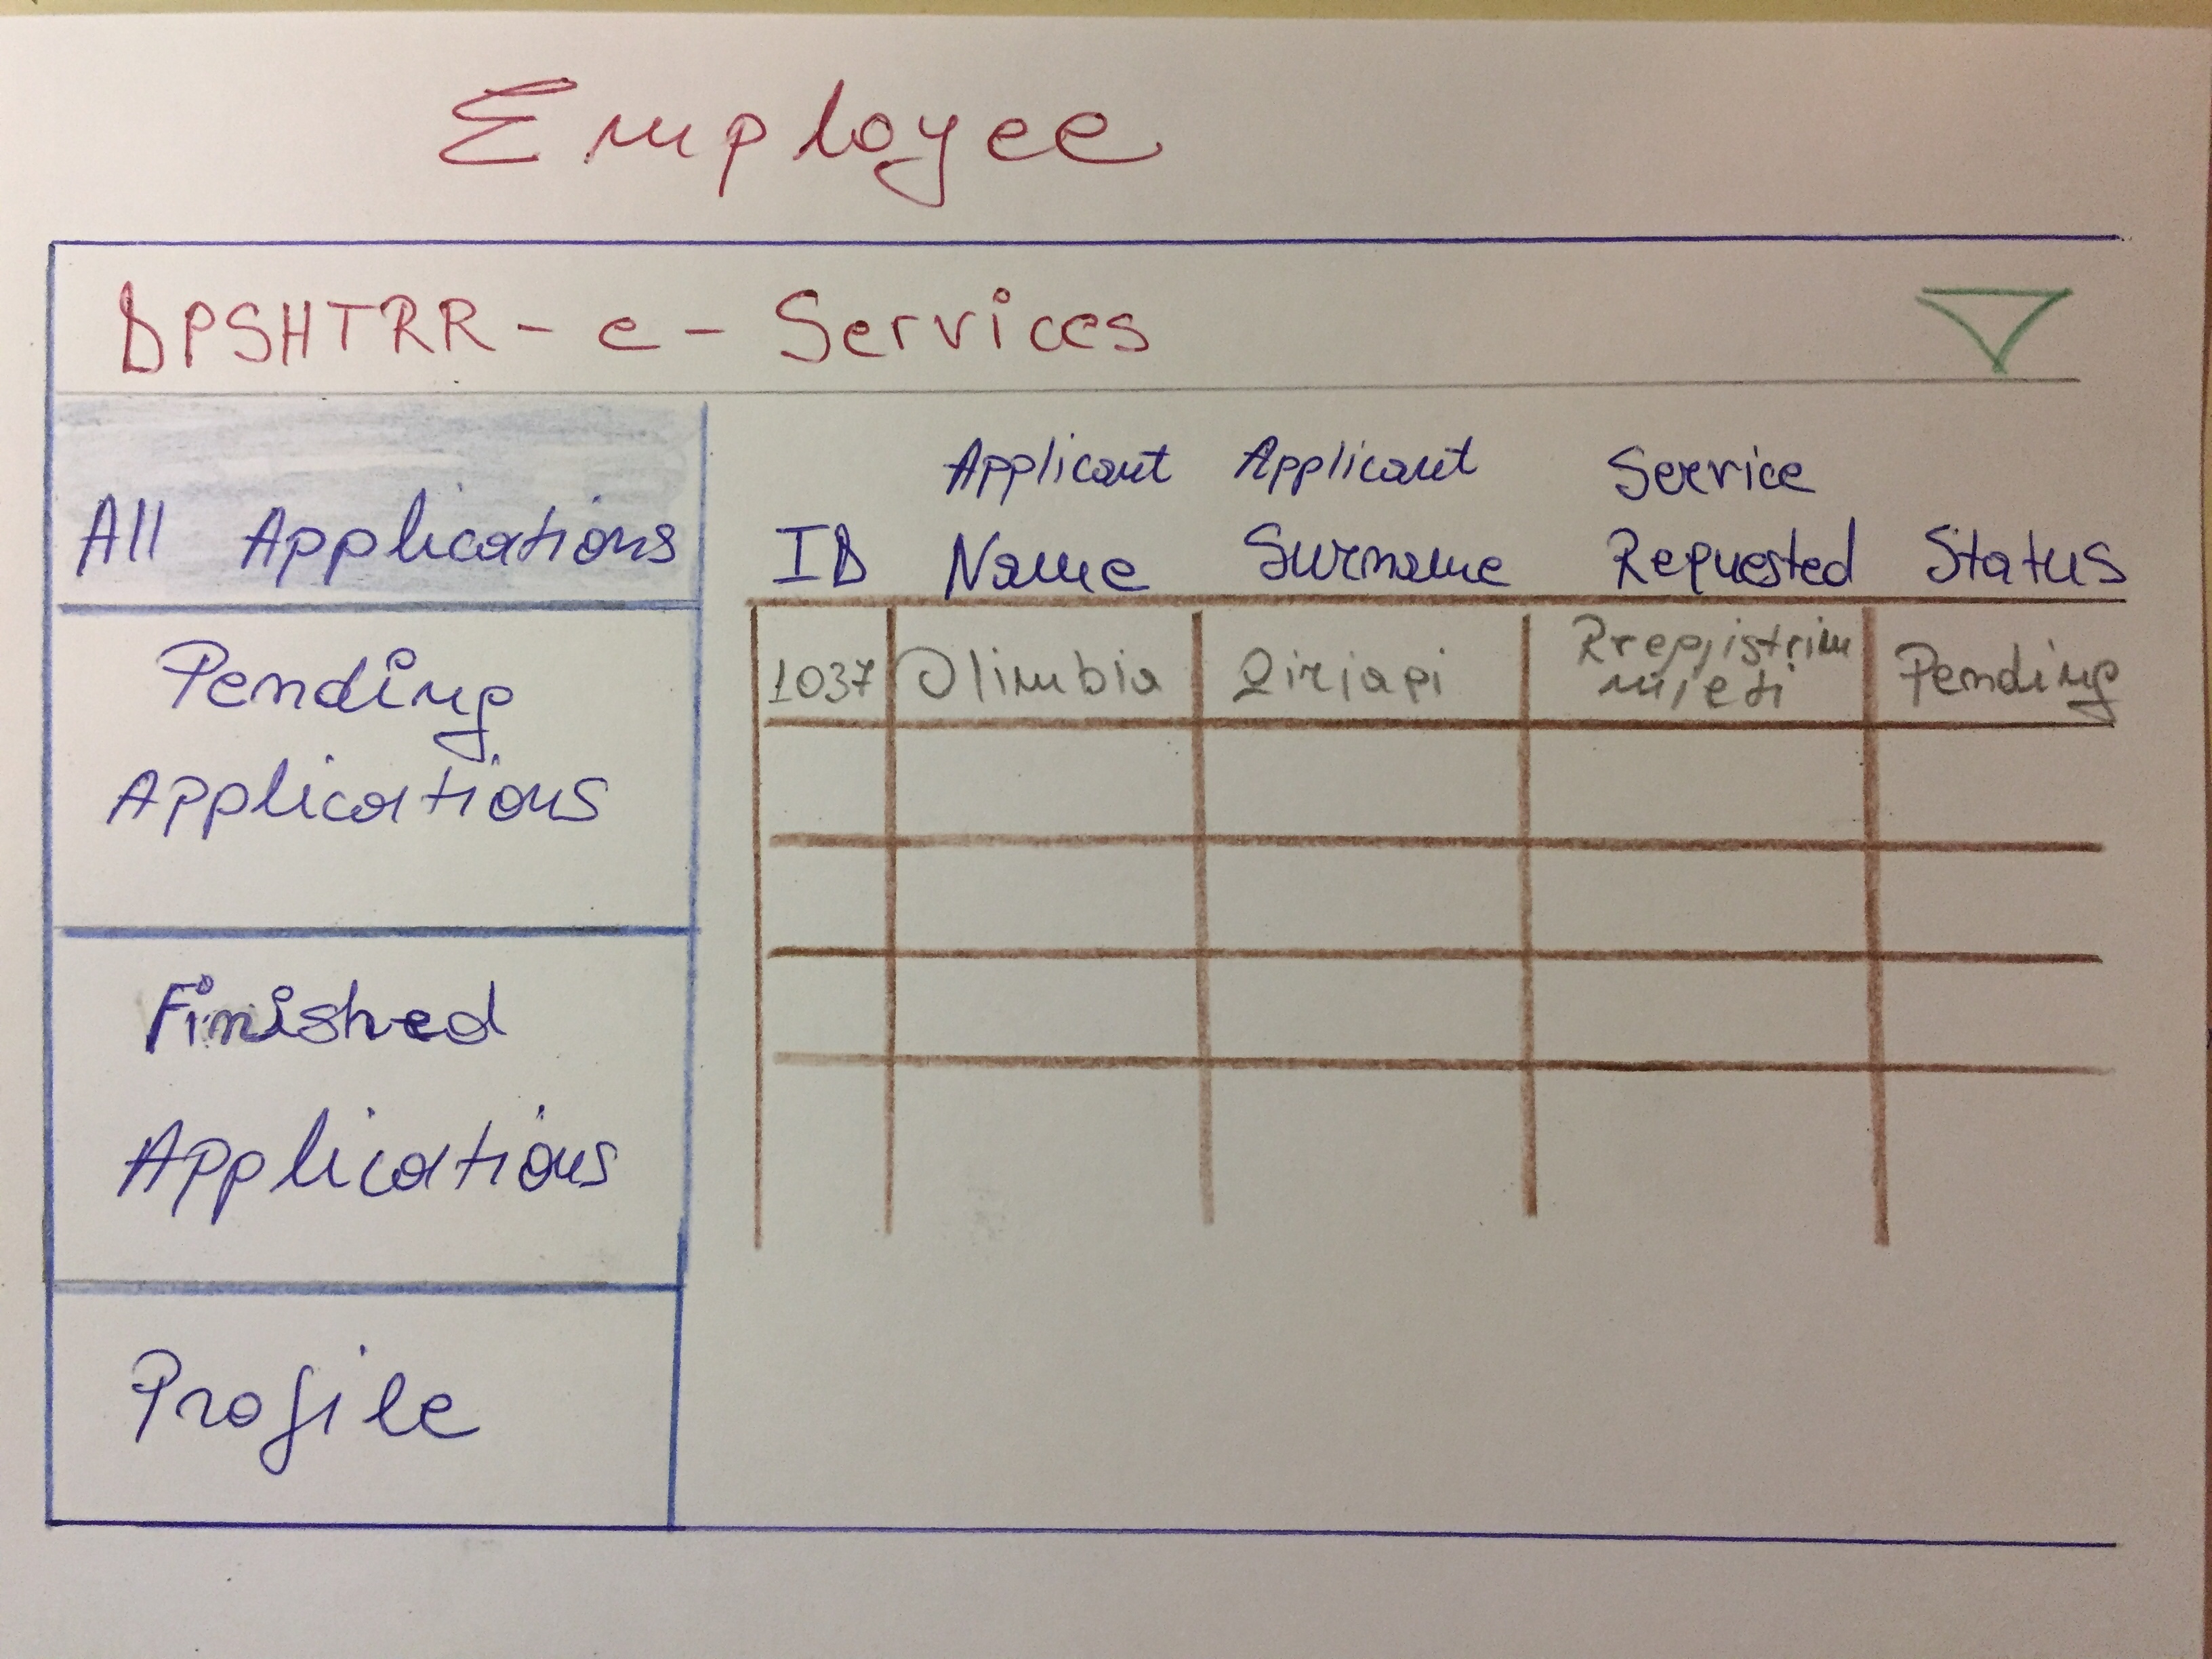 Employee
DPSHTRR - e - Services
All Applications
Pending
Applications
Finished
Applications
Profile
Applicant Applicant Service
ID Name Surname Requested Status
1037 Olimbia Qirjaqi Rregjistrim Pending
mjeti